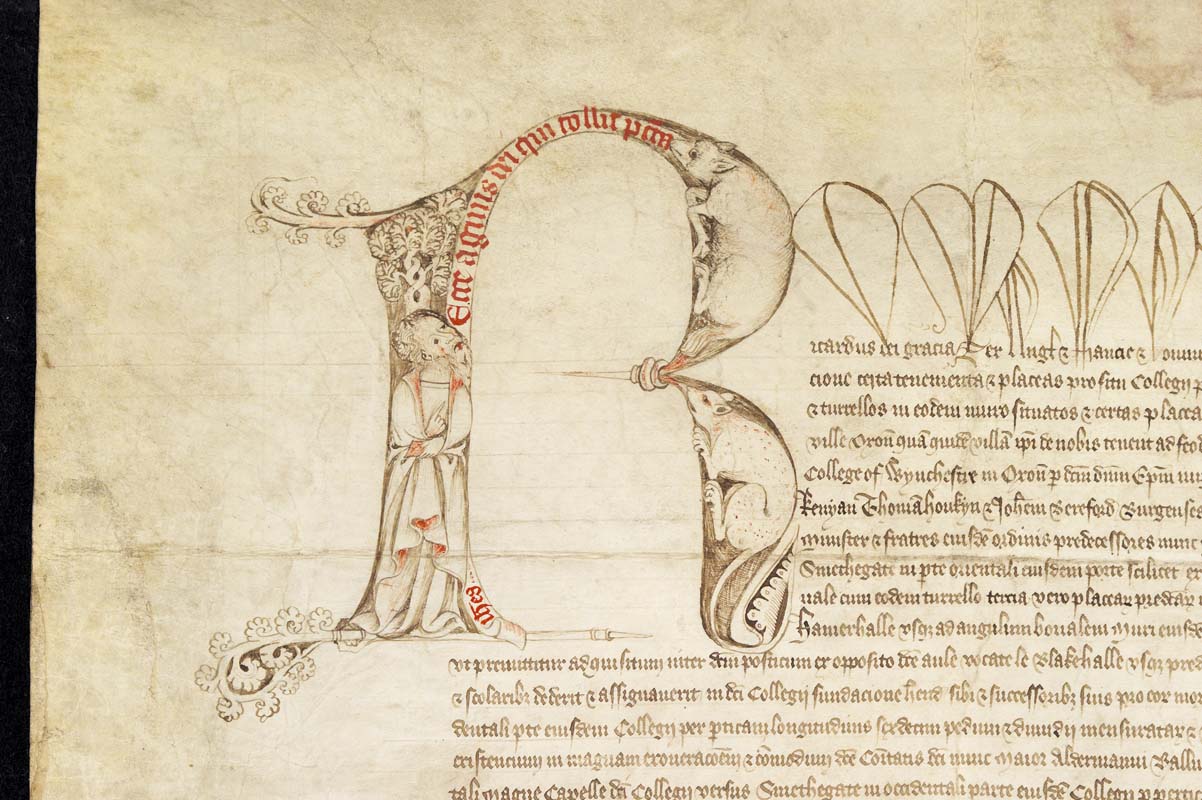 Ecce agnus dei qui tollit pcca
Ricardus dei gracia Rex Angl & Francie & Domin
cione certa tenementa & placeas pro situ Collegii p
& turrellos in eodem muro situatos & certas placea
ville Oxoñ quã quidẽ villã ip̃i de nobis tenent ad feod
College of Wynchestre in Oxoñ p dcm dnm Ep̃m
Kenyan Thomã houkyn & Joh̃em Bereford Burgenses
Minister & fratres eiusdẽ ordinis predecessores nunc
Smethegate in p̲te orientali eiusdem porte scilicet
uale cum eodem turrello tercia vero placea predca
Hamerhalle vsq̲ ad angulum borialem Muri eiusd
vt premittitur adquisitum inter dcm posticum ex opposito dce aule vocate le Blakehalle vsq̲ pred
& scolarib̲ dederit & assignauerit in dc̃i Collegii fundacione sibi & successorib̲ suis pro
dentali p̲te eiusdem Collegii per p̲ticam longitudinis sexdecim pedum & dimidii mensuratar &
existencium in magnam exon̲acõem & cõmodum dce Cõitatis dc̃i nunc Maior Aldermanni Balliu
tali magne Capelle dc̃i Collegii versus Smethegate in occidentali parte eiusdẽ Collegii